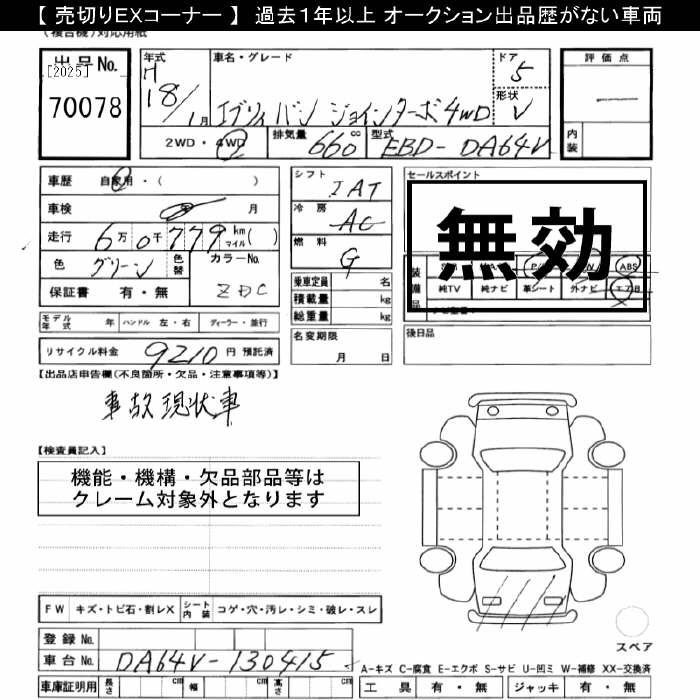 【 売切りEXコーナー 】 過去１年以上 オークション出品歴がない車両
(複合機)対応用紙
出品 No.
[2025]
70078
年式
H
18/1月
車名・グレード
エブリィ バン ジョインターボ 4WD
ドア
5
形状
V
評価点
—
内装
2WD・4WD
排気量
660
型式
EBD-DA64V
車歴 自家用・( )
車検 年 月
走行 6万0千779 km マイル ( )
色 グリーン 色替 カラーNo.
保証書 有・無 ZDC
シフト
IAT
冷房
AC
燃料
G
乗車定員 名
積載量 kg
総重量 kg
名変期限
月 日
セールスポイント
無効
装備品
ABS
純TV 純ナビ 革シート 外ナビ エアB
後日品
モデル年式 年 ハンドル 左・右 ディーラー・並行
リサイクル料金 9210 円 預託済
【出品店申告欄(不良箇所・欠品・注意事項等)】
事故現状車
【検査員記入】
機能・機構・欠品部品等は
クレーム対象外となります
FW キズ・トビ石・割レX シート内装 コゲ・穴・汚レ・シミ・破レ・スレ
登録 No.
車台 No. DA64V-130415
車庫証明用 長さ cm 幅 cm 高さ cm
スペア
A-キズ C-腐食 E-エクボ S-サビ U-凹ミ W-補修 XX-交換済
工具 有・無 ジャッキ 有・無